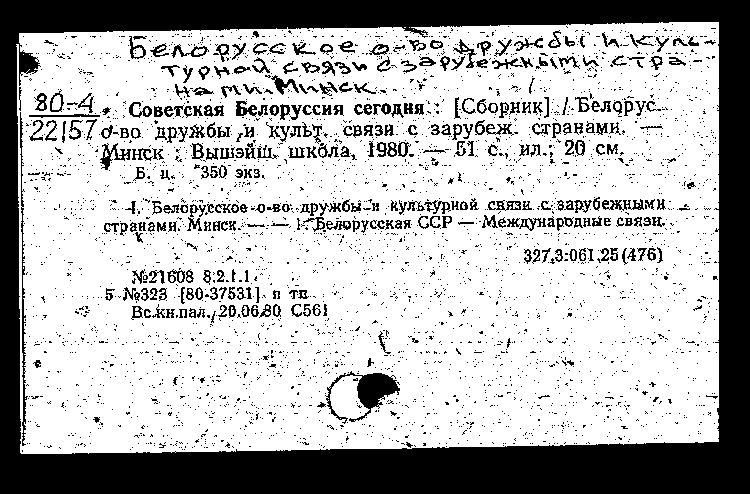 Белорусское о-во дружбы и куль-
турной связи с зарубежными стра-
нами. Минск.
80-4
22157
Советская Белоруссия сегодня : [Сборник] / Белорус.
о-во дружбы и культ. связи с зарубеж. странами. —
Минск : Вышэйш. школа, 1980. — 51 с., ил.; 20 см.
Б. ц. 350 экз.
I. Белорусское о-во дружбы и культурной связи с зарубежными
странами. Минск. — — 1. Белорусская ССР — Международные связи.
327.3:061.25(476)
№21608 8.2.1.1.
5 №323 [80-37531] п тп
Вс.кн.пал. 20.06.80 С561